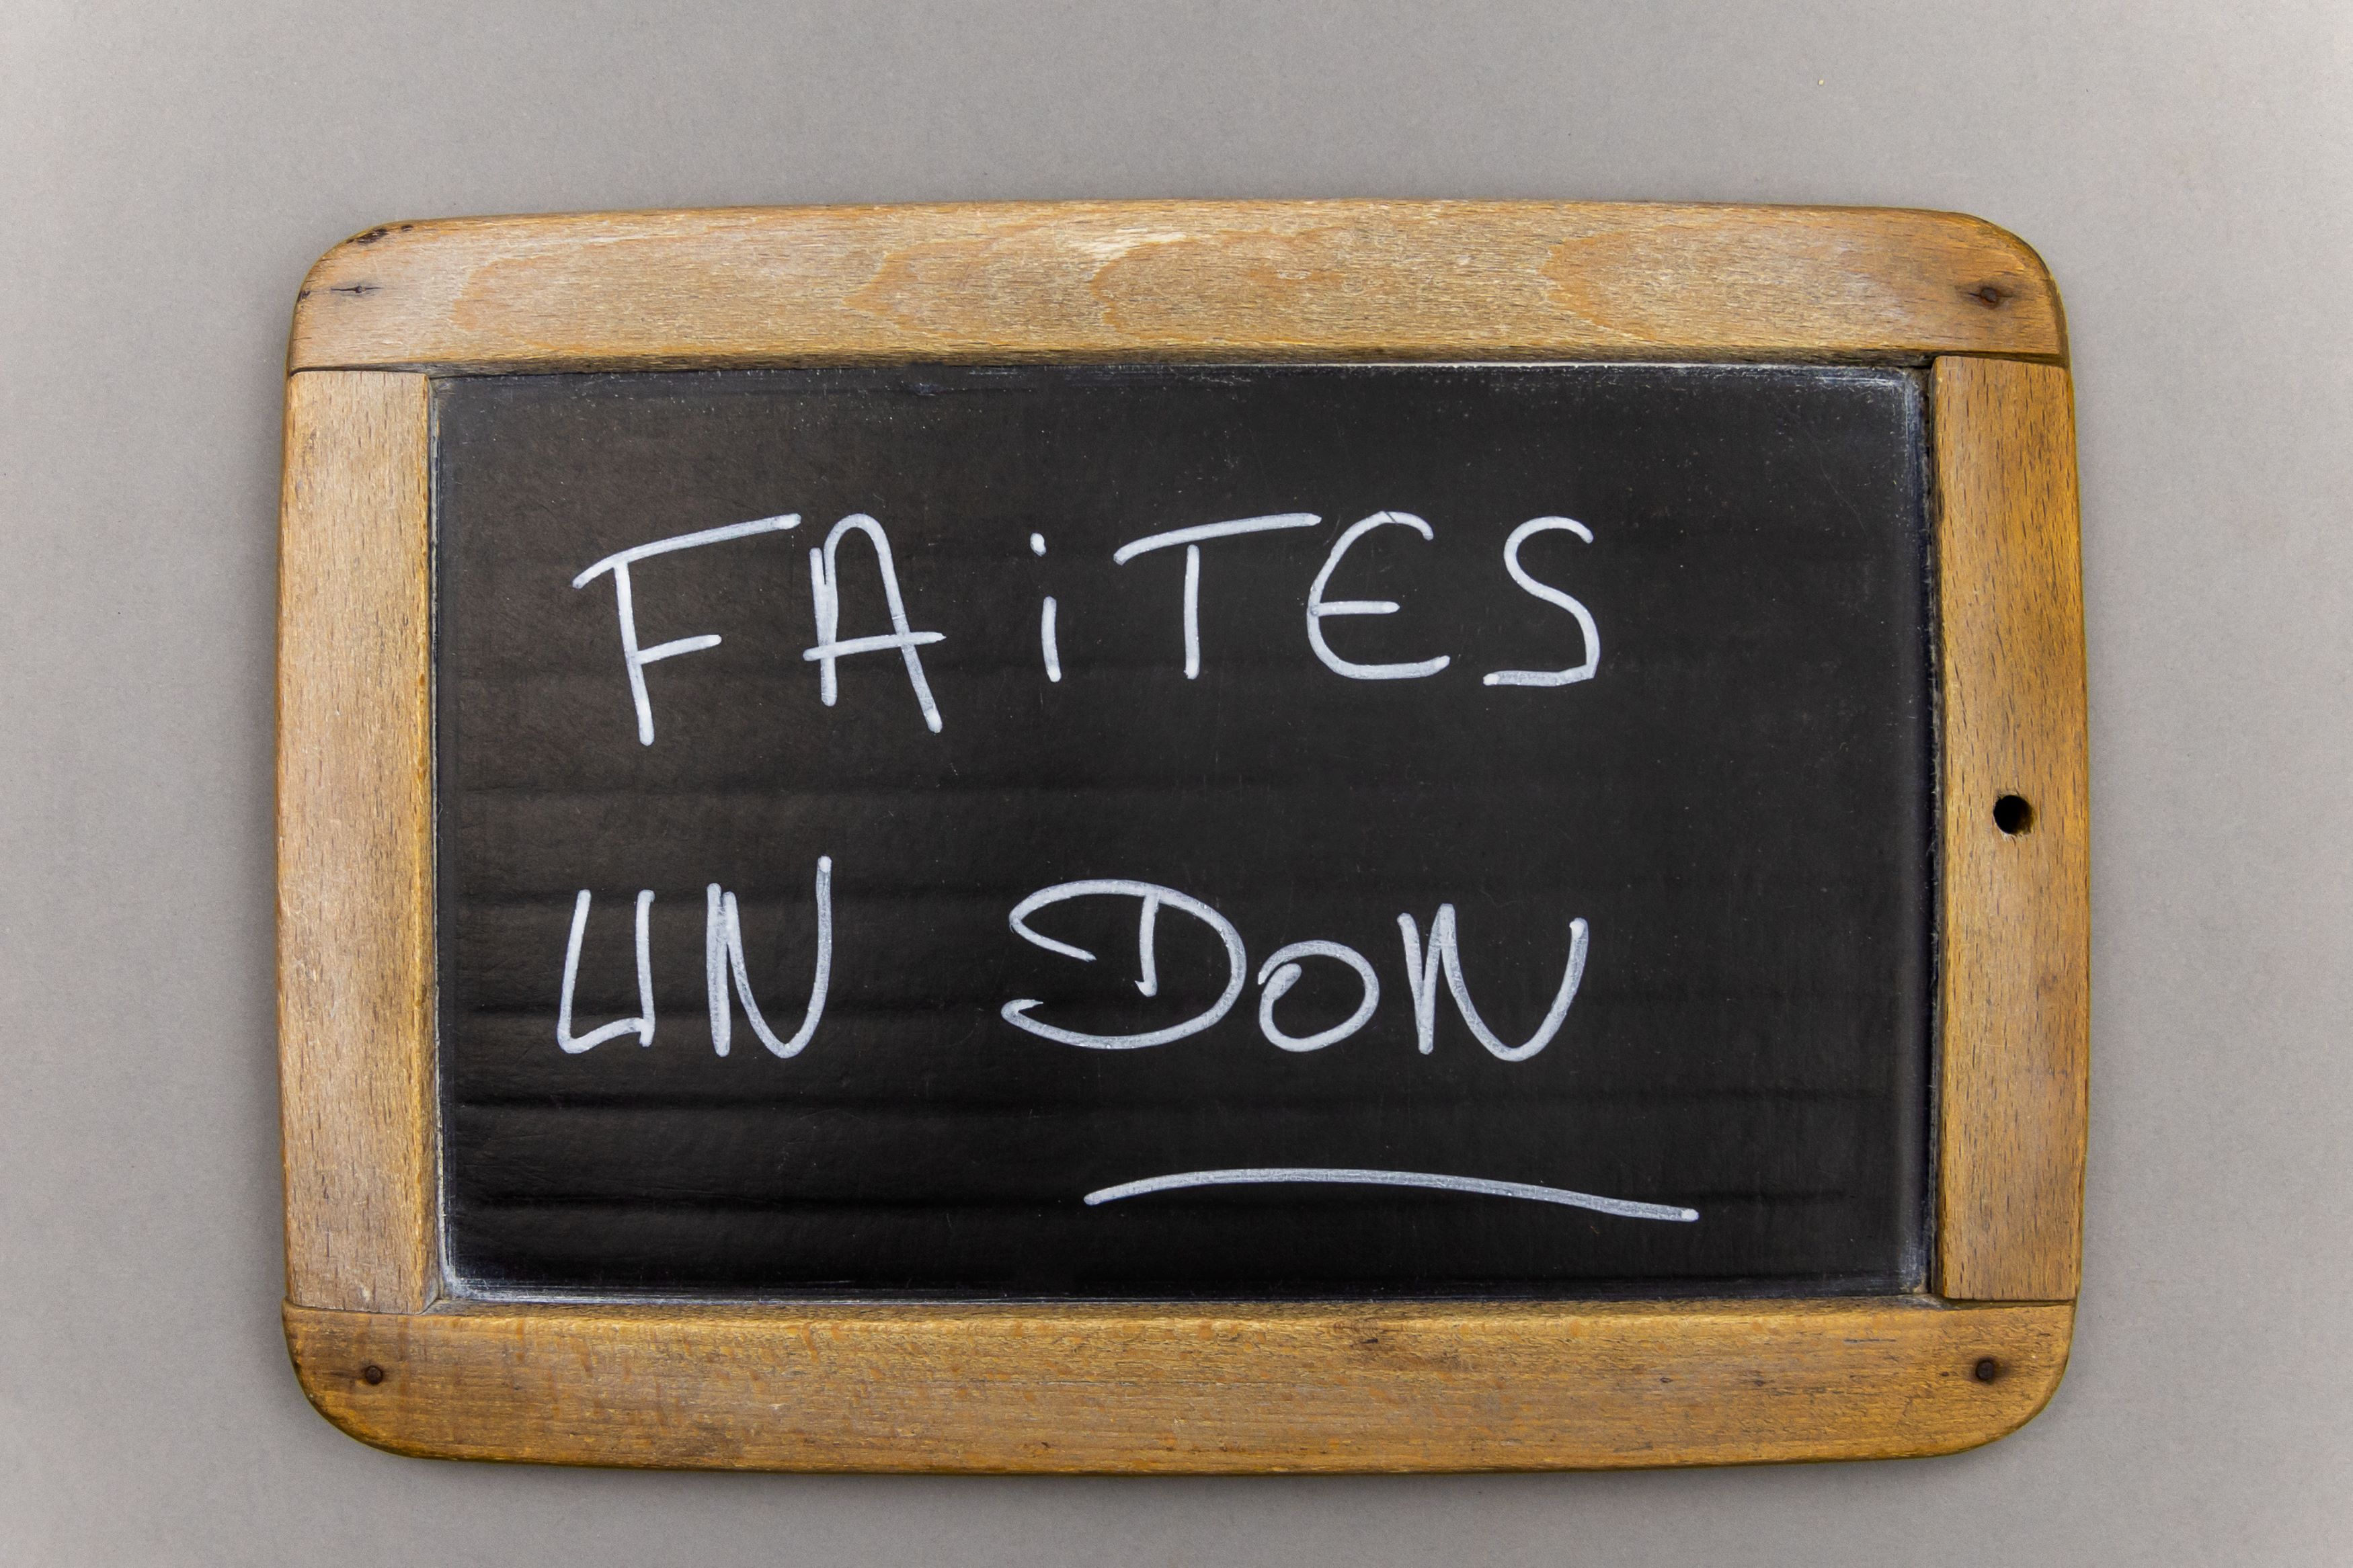 FAiTES
UN DON